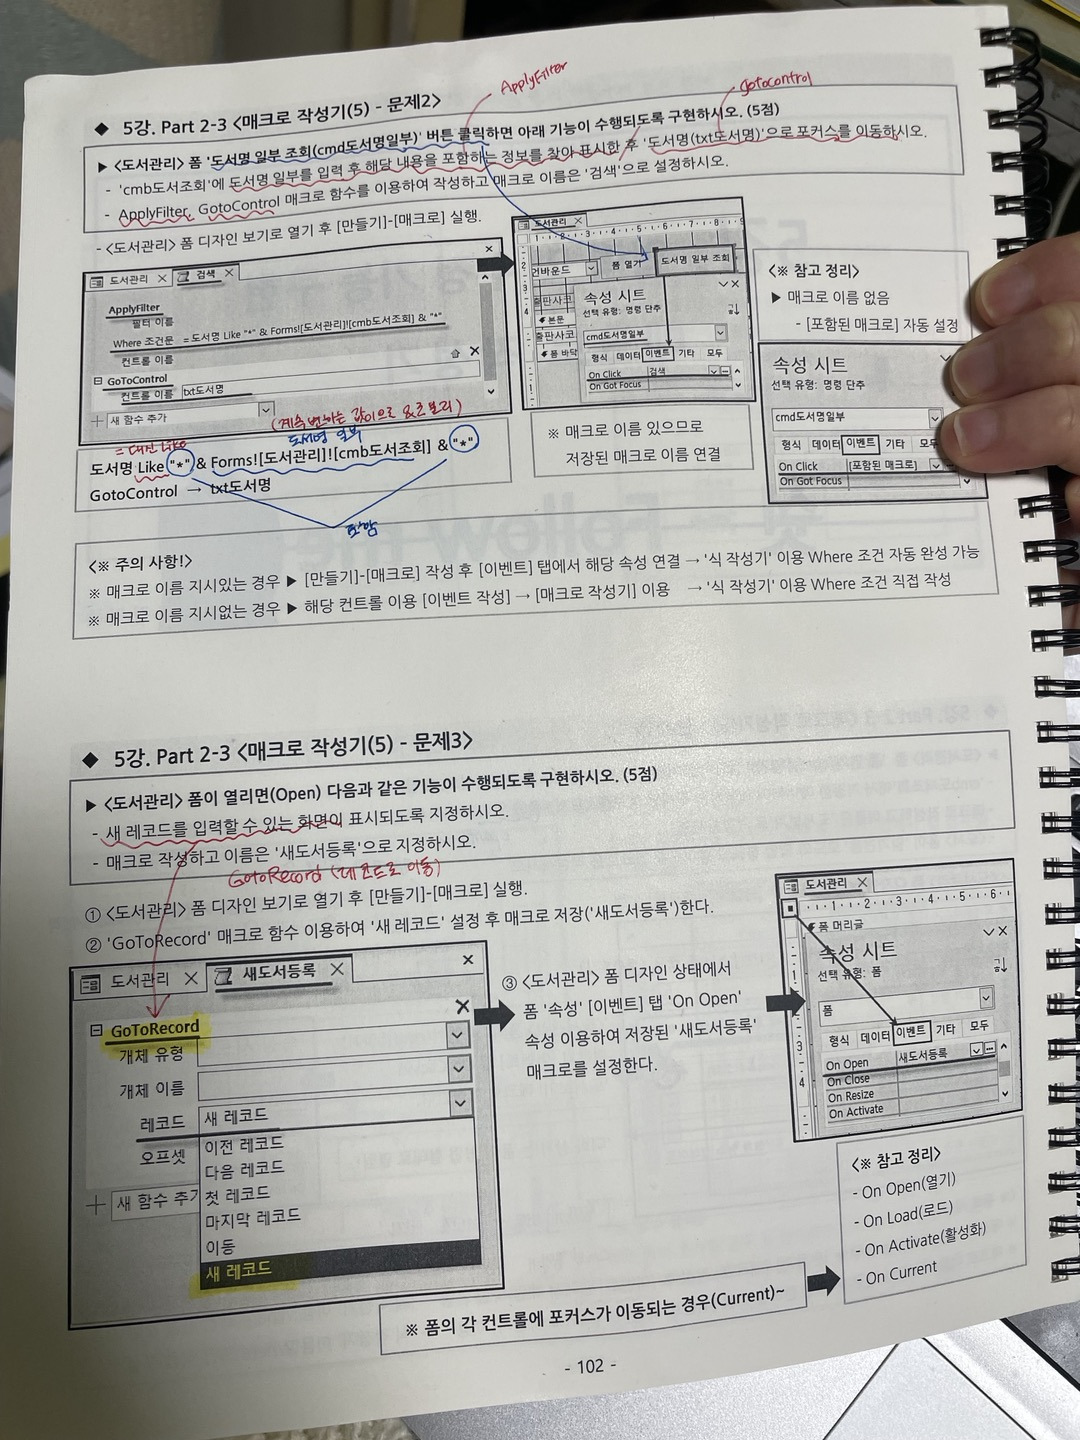 ApplyFilter
gotocontrol
◆ 5강. Part 2-3 <매크로 작성기(5) - 문제2>
▶ <도서관리> 폼 '도서명 일부 조회(cmd도서명일부)' 버튼 클릭하면 아래 기능이 수행되도록 구현하시오. (5점)
- 'cmb도서조회'에 도서명 일부를 입력 후 해당 내용을 포함하는 정보를 찾아 표시한 후 '도서명(txt도서명)'으로 포커스를 이동하시오.
- ApplyFilter, GotoControl 매크로 함수를 이용하여 작성하고 매크로 이름은 '검색'으로 설정하시오.
- <도서관리> 폼 디자인 보기로 열기 후 [만들기]-[매크로] 실행.
도서관리 × 검색 ×
ApplyFilter
필터 이름
Where 조건문 = 도서명 Like "*" & Forms![도서관리]![cmb도서조회] & "*"
컨트롤 이름
GoToControl
컨트롤 이름 txt도서명
새 함수 추가
도서관리 ×
1 2 3 4 5 6 7 8 9
언바운드 폼 열기 도서명 일부 조회
출판사코
본문
출판사코
폼 바닥
속성 시트
선택 유형: 명령 단추
cmd도서명일부
형식 데이터 이벤트 기타 모두
On Click 검색
On Got Focus
<※ 참고 정리>
▶ 매크로 이름 없음
- [포함된 매크로] 자동 설정
속성 시트
선택 유형: 명령 단추
cmd도서명일부
형식 데이터 이벤트 기타 모두
On Click [포함된 매크로]
On Got Focus
※ 매크로 이름 있으므로
저장된 매크로 이름 연결
(계속 변하는 값이므로 &로 분리)
도서명 일부
도서명 Like "*" & Forms![도서관리]![cmb도서조회] & "*"
GotoControl → txt도서명
포함
<※ 주의 사항!>
※ 매크로 이름 지시있는 경우 ▶ [만들기]-[매크로] 작성 후 [이벤트] 탭에서 해당 속성 연결 → '식 작성기' 이용 Where 조건 자동 완성 가능
※ 매크로 이름 지시없는 경우 ▶ 해당 컨트롤 이용 [이벤트 작성] → [매크로 작성기] 이용 → '식 작성기' 이용 Where 조건 직접 작성
◆ 5강. Part 2-3 <매크로 작성기(5) - 문제3>
▶ <도서관리> 폼이 열리면(Open) 다음과 같은 기능이 수행되도록 구현하시오. (5점)
- 새 레코드를 입력할 수 있는 화면이 표시되도록 지정하시오.
- 매크로 작성하고 이름은 '새도서등록'으로 지정하시오.
GotoRecord (레코드로 이동)
① <도서관리> 폼 디자인 보기로 열기 후 [만들기]-[매크로] 실행.
② 'GoToRecord' 매크로 함수 이용하여 '새 레코드' 설정 후 매크로 저장('새도서등록')한다.
도서관리 × 새도서등록 ×
GoToRecord
개체 유형
개체 이름
레코드 새 레코드
오프셋
이전 레코드
다음 레코드
첫 레코드
마지막 레코드
이동
새 레코드
새 함수 추가
③ <도서관리> 폼 디자인 상태에서
폼 '속성' [이벤트] 탭 'On Open'
속성 이용하여 저장된 '새도서등록'
매크로를 설정한다.
도서관리 ×
1 2 3 4 5 6
폼 머리글
속성 시트
선택 유형: 폼
폼
형식 데이터 이벤트 기타 모두
On Open 새도서등록
On Close
On Resize
On Activate
<※ 참고 정리>
- On Open(열기)
- On Load(로드)
- On Activate(활성화)
- On Current
※ 폼의 각 컨트롤에 포커스가 이동되는 경우(Current)~
- 102 -